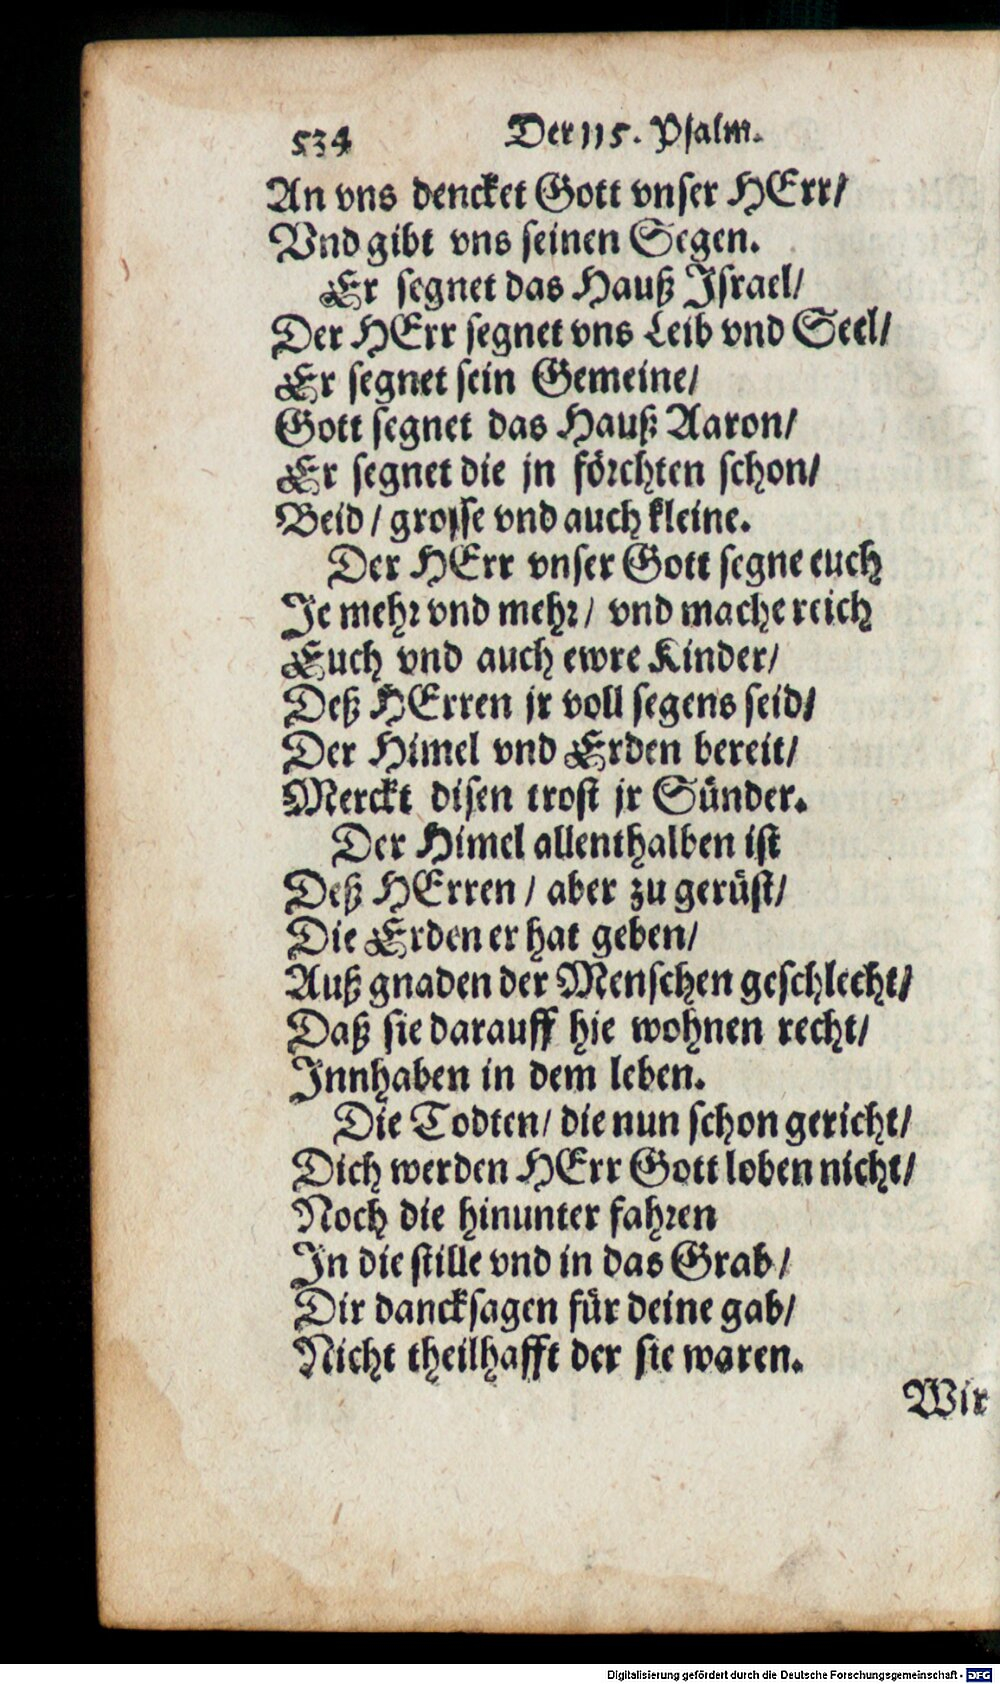 534 Der 115. Psalm.
An vns dencket Gott vnser HErr/
Vnd gibt vns seinen Segen.
Er segnet das Hauß Israel/
Der HErr segnet vns Leib vnd Seel/
Er segnet sein Gemeine/
Gott segnet das Hauß Aaron/
Er segnet die jn förchten schon/
Beid / grosse vnd auch kleine.
Der HErr vnser Gott segne euch
Je mehr vnd mehr / vnd mache reich
Euch vnd auch ewre Kinder/
Deß HErren jr voll segens seid/
Der Himel vnd Erden bereit/
Merckt disen trost jr Sünder.
Der Himel allenthalben ist
Deß HErren / aber zu gerüst/
Die Erden er hat geben/
Auß gnaden der Menschen geschlecht/
Daß sie darauff hie wohnen recht/
Innhaben in dem leben.
Die Todten/ die nun schon gericht/
Dich werden HErr Gott loben nicht/
Noch die hinunter fahren
In die stille vnd in das Grab/
Dir dancksagen für deine gab/
Nicht theilhafft der sie waren.
Wir
Digitalisierung gefördert durch die Deutsche Forschungsgemeinschaft - DFG